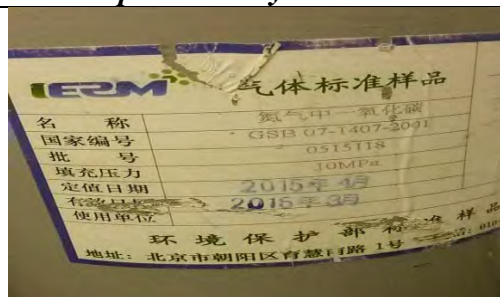 IERM 气体标准样品
名 称 氮气中一氧化碳
国家编号 GSB 07-1407-2001
批 号 0515118
填充压力 10MPa
定值日期 2015年4月
有效日期 2016年3月
使用单位
环境保护部标准样品
地址：北京市朝阳区育慧南路1号 话：010